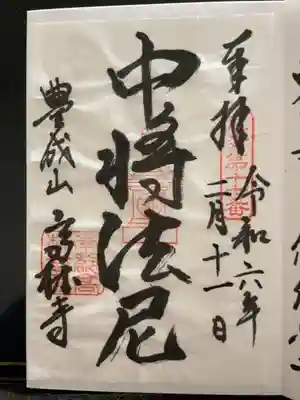 奉拝
令和六年
二月十一日
中将法尼
豊成山
高林寺